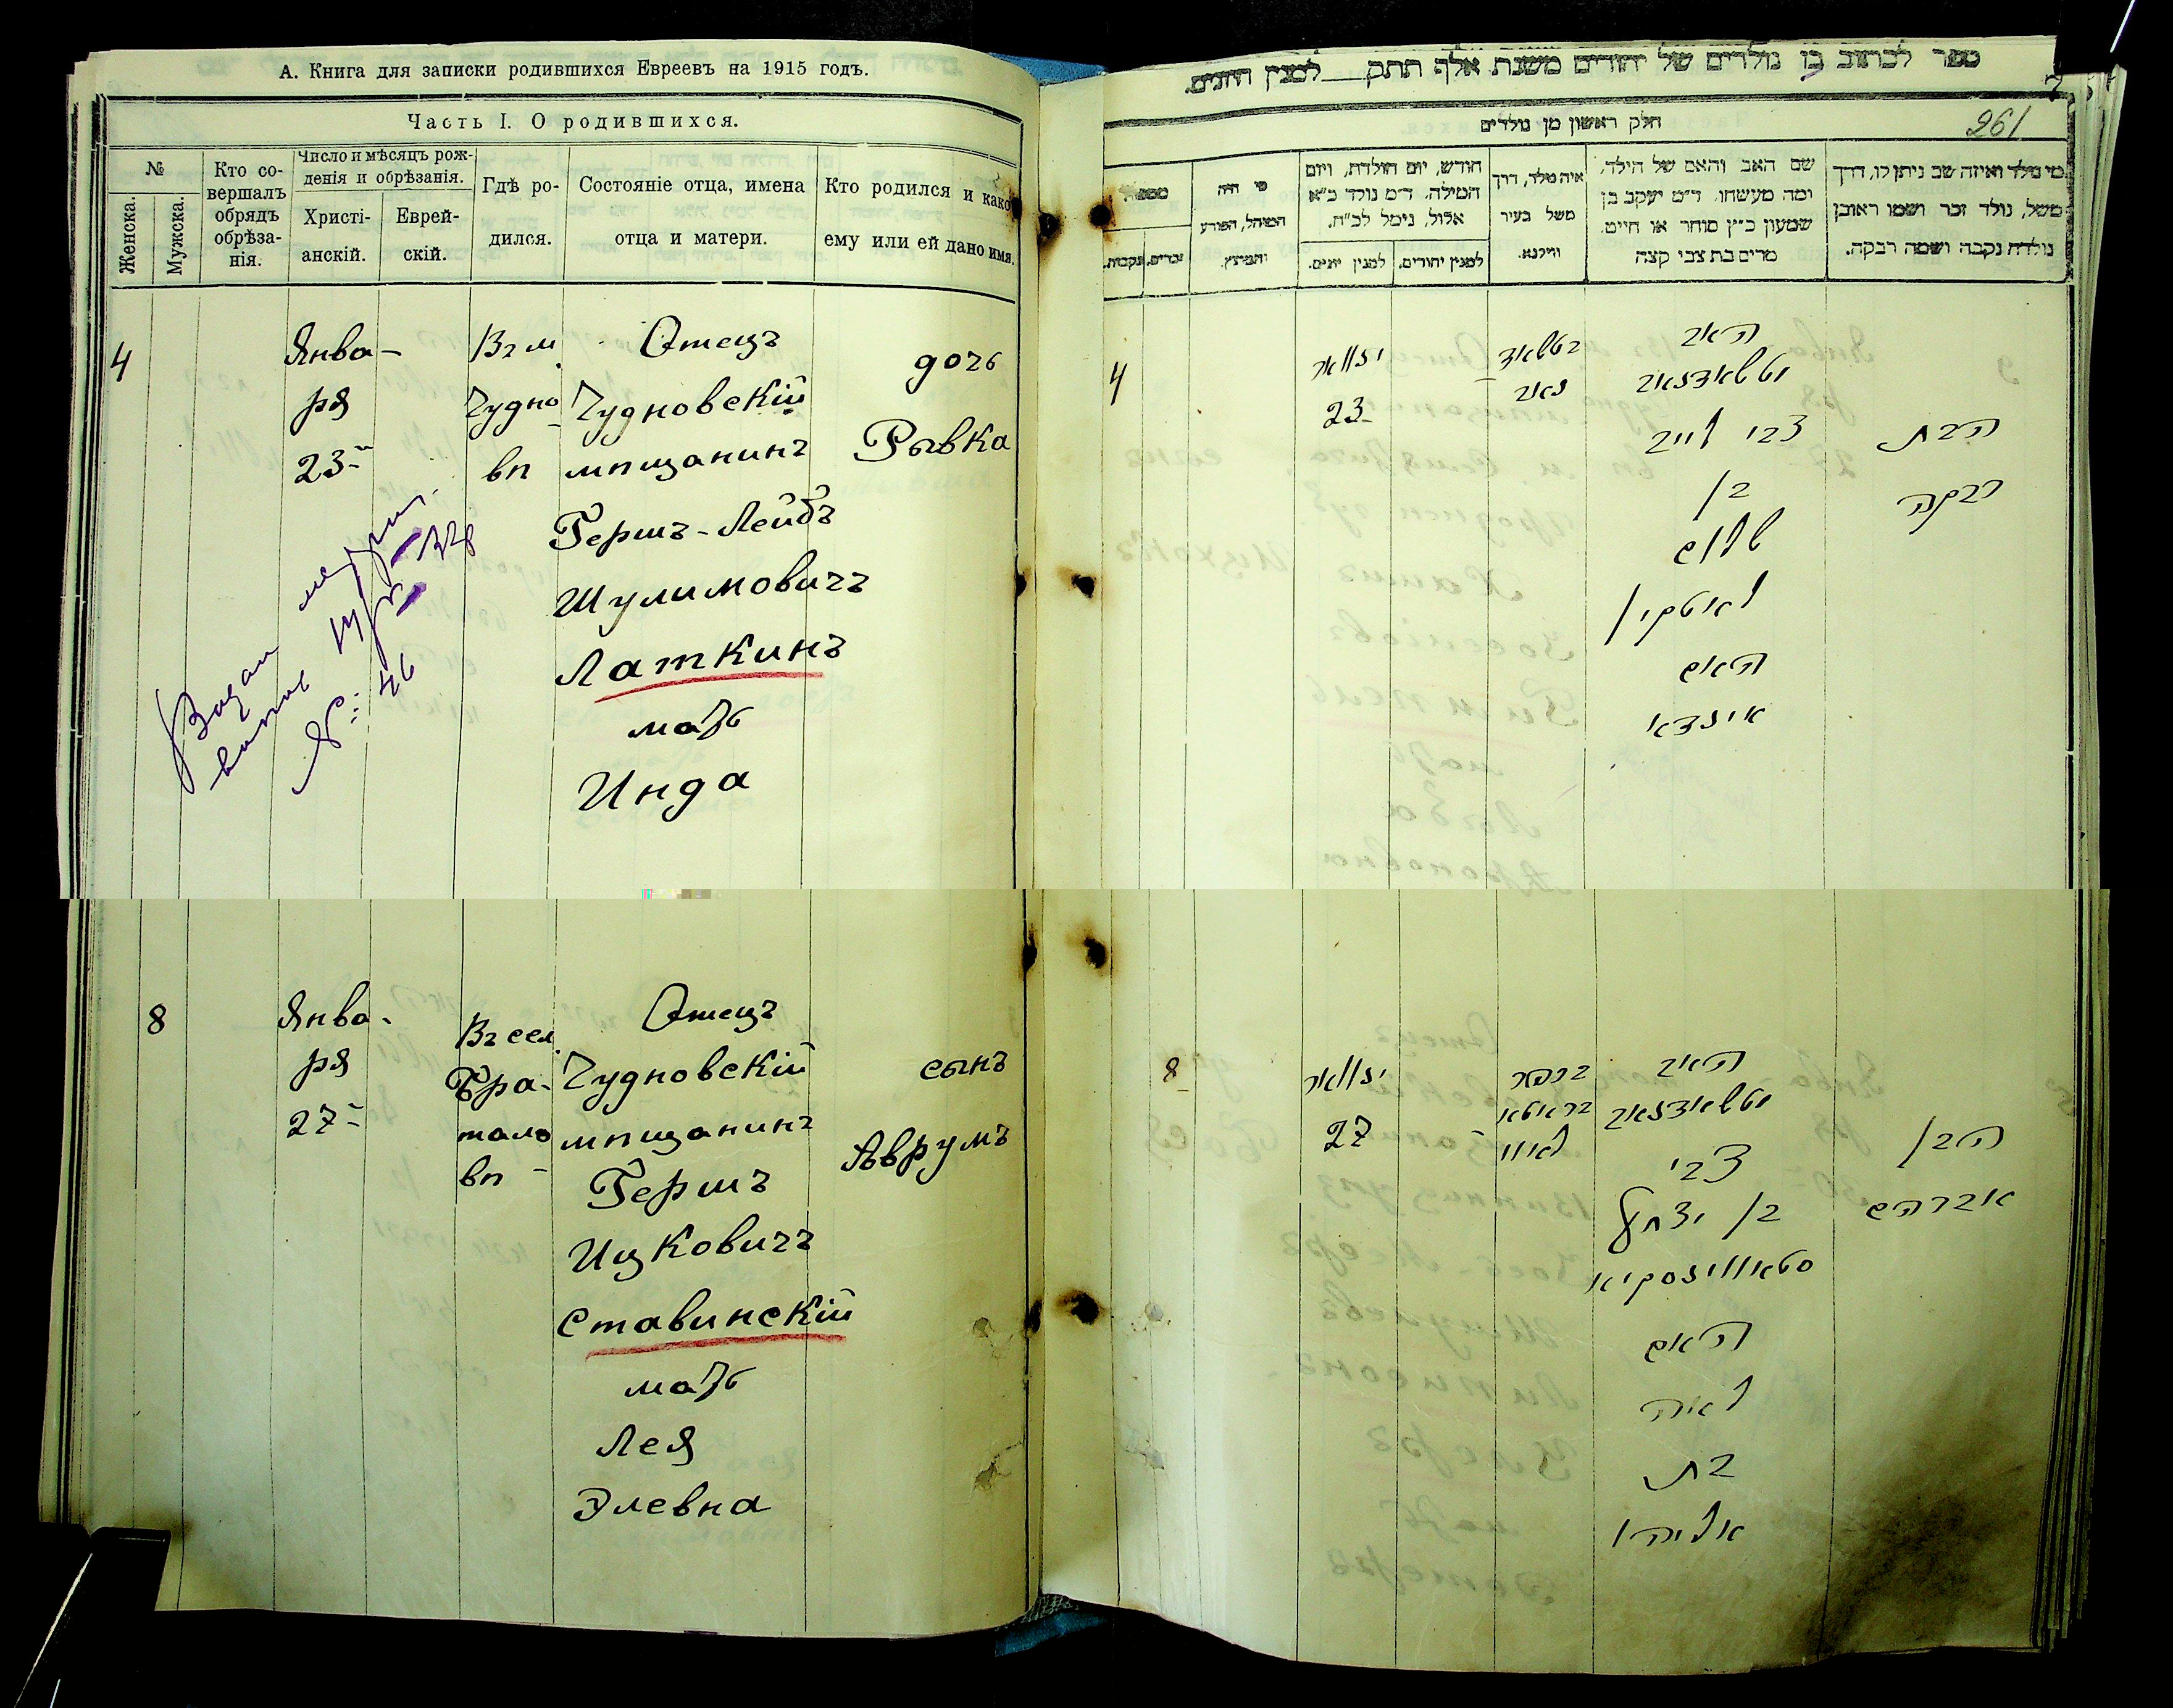 А. Книга для записки родившихся Евреевъ на 1915 годъ.
Часть I. О родившихся.
№
Женска.
Мужска.
Кто со-
вершалъ
обрядъ
обрѣза-
нія.
Число и мѣсяцъ рож-
денія и обрѣзанія.
Христі-
анскій.
Еврей-
скій.
Гдѣ ро-
дился.
Состояніе отца, имена
отца и матери.
Кто родился и како
ему или ей дано имя.
4
Янва-
ря
23-
Вг м.
Чудно-
вп
Отецъ
Чудновскій
мпщанинъ
Гершъ-Лейбъ
Шулимовичъ
Латкинъ
мать
Инда
дочь
Рывка
№: 46
8
Янва-
ря
27-
Вг сел.
Бра-
тало
вп-
Отецъ
Чудновскій
мпщанинъ
Гершъ
Ицковичъ
Ставинскій
мать
Лея
Элевна
сынъ
Аврумъ
ספר לכתוב בו נולדים של יהודים משנת אלף תתק למנין היונים.
חלק ראשון מן נולדים
261
מספר
זכרים.
נקבות.
מי היה
המוהל, הפורע
והמוצץ.
חודש, יום הולדת, ויום
המילה. ד״מ נולד כ״א
אלול, נימל לכ״ח.
למנין יהודים.
למנין יונים.
איה נולד, דרך
משל בעיר
ווילנא.
שם האב והאם של הילד,
ומה מעשהו. ד״מ יעקב בן
שמעון כ״ץ סוחר או חייט.
מרים בת צבי קצה
מי נולד ואיזה שם ניתן לו, דרך
משל, נולד זכר ושמו ראובן
נולדה נקבה ושמה רבקה.
4
ינואר
23-
האב
טשאדנאוו
צבי לייב
בן
שלום
לאטקין
האם
אינדא
הבת
רבקה
8
ינואר
27
בכפר
בראטא
לאוו
האב
טשאדנאוו
צבי
בן יצחק
סטאווינסקיא
האם
לאה
בת
אליהו
הבן
אברהם